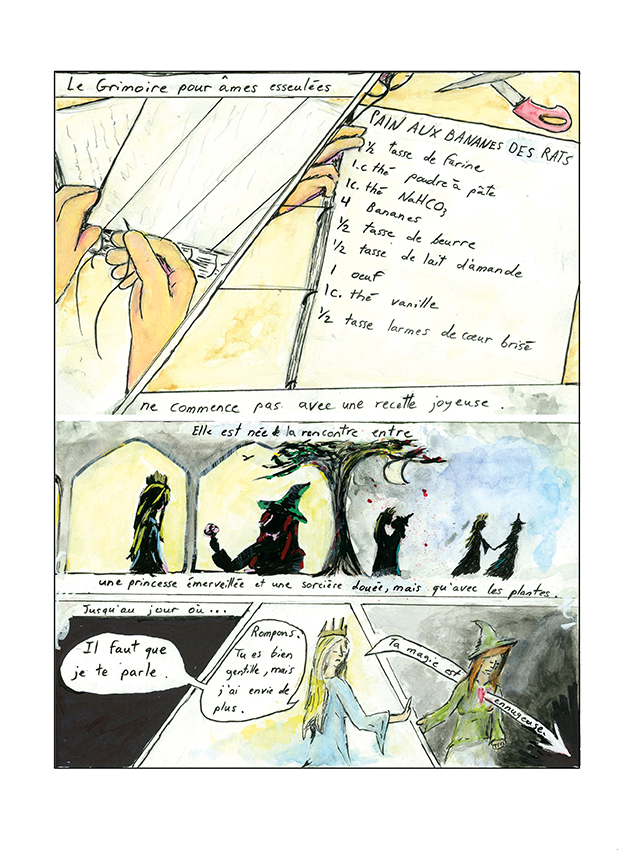 Le Grimoire pour âmes esseulées
PAIN AUX BANANES DES RATS
1 ½ tasse de farine
1.c thé poudre à pâte
1c. thé NaHCO3
4 Bananes
½ tasse de beurre
½ tasse de lait d'amande
1 oeuf
1c. thé vanille
½ tasse larmes de cœur brisé
ne commence pas avec une recette joyeuse.
Elle est née de la rencontre entre
une princesse émerveillée et une sorcière douée, mais qu'avec les plantes.
Jusqu'au jour où...
Il faut que
je te parle.
Rompons.
Tu es bien
gentille, mais
j'ai envie de
plus.
Ta magie est
ennuyeuse.